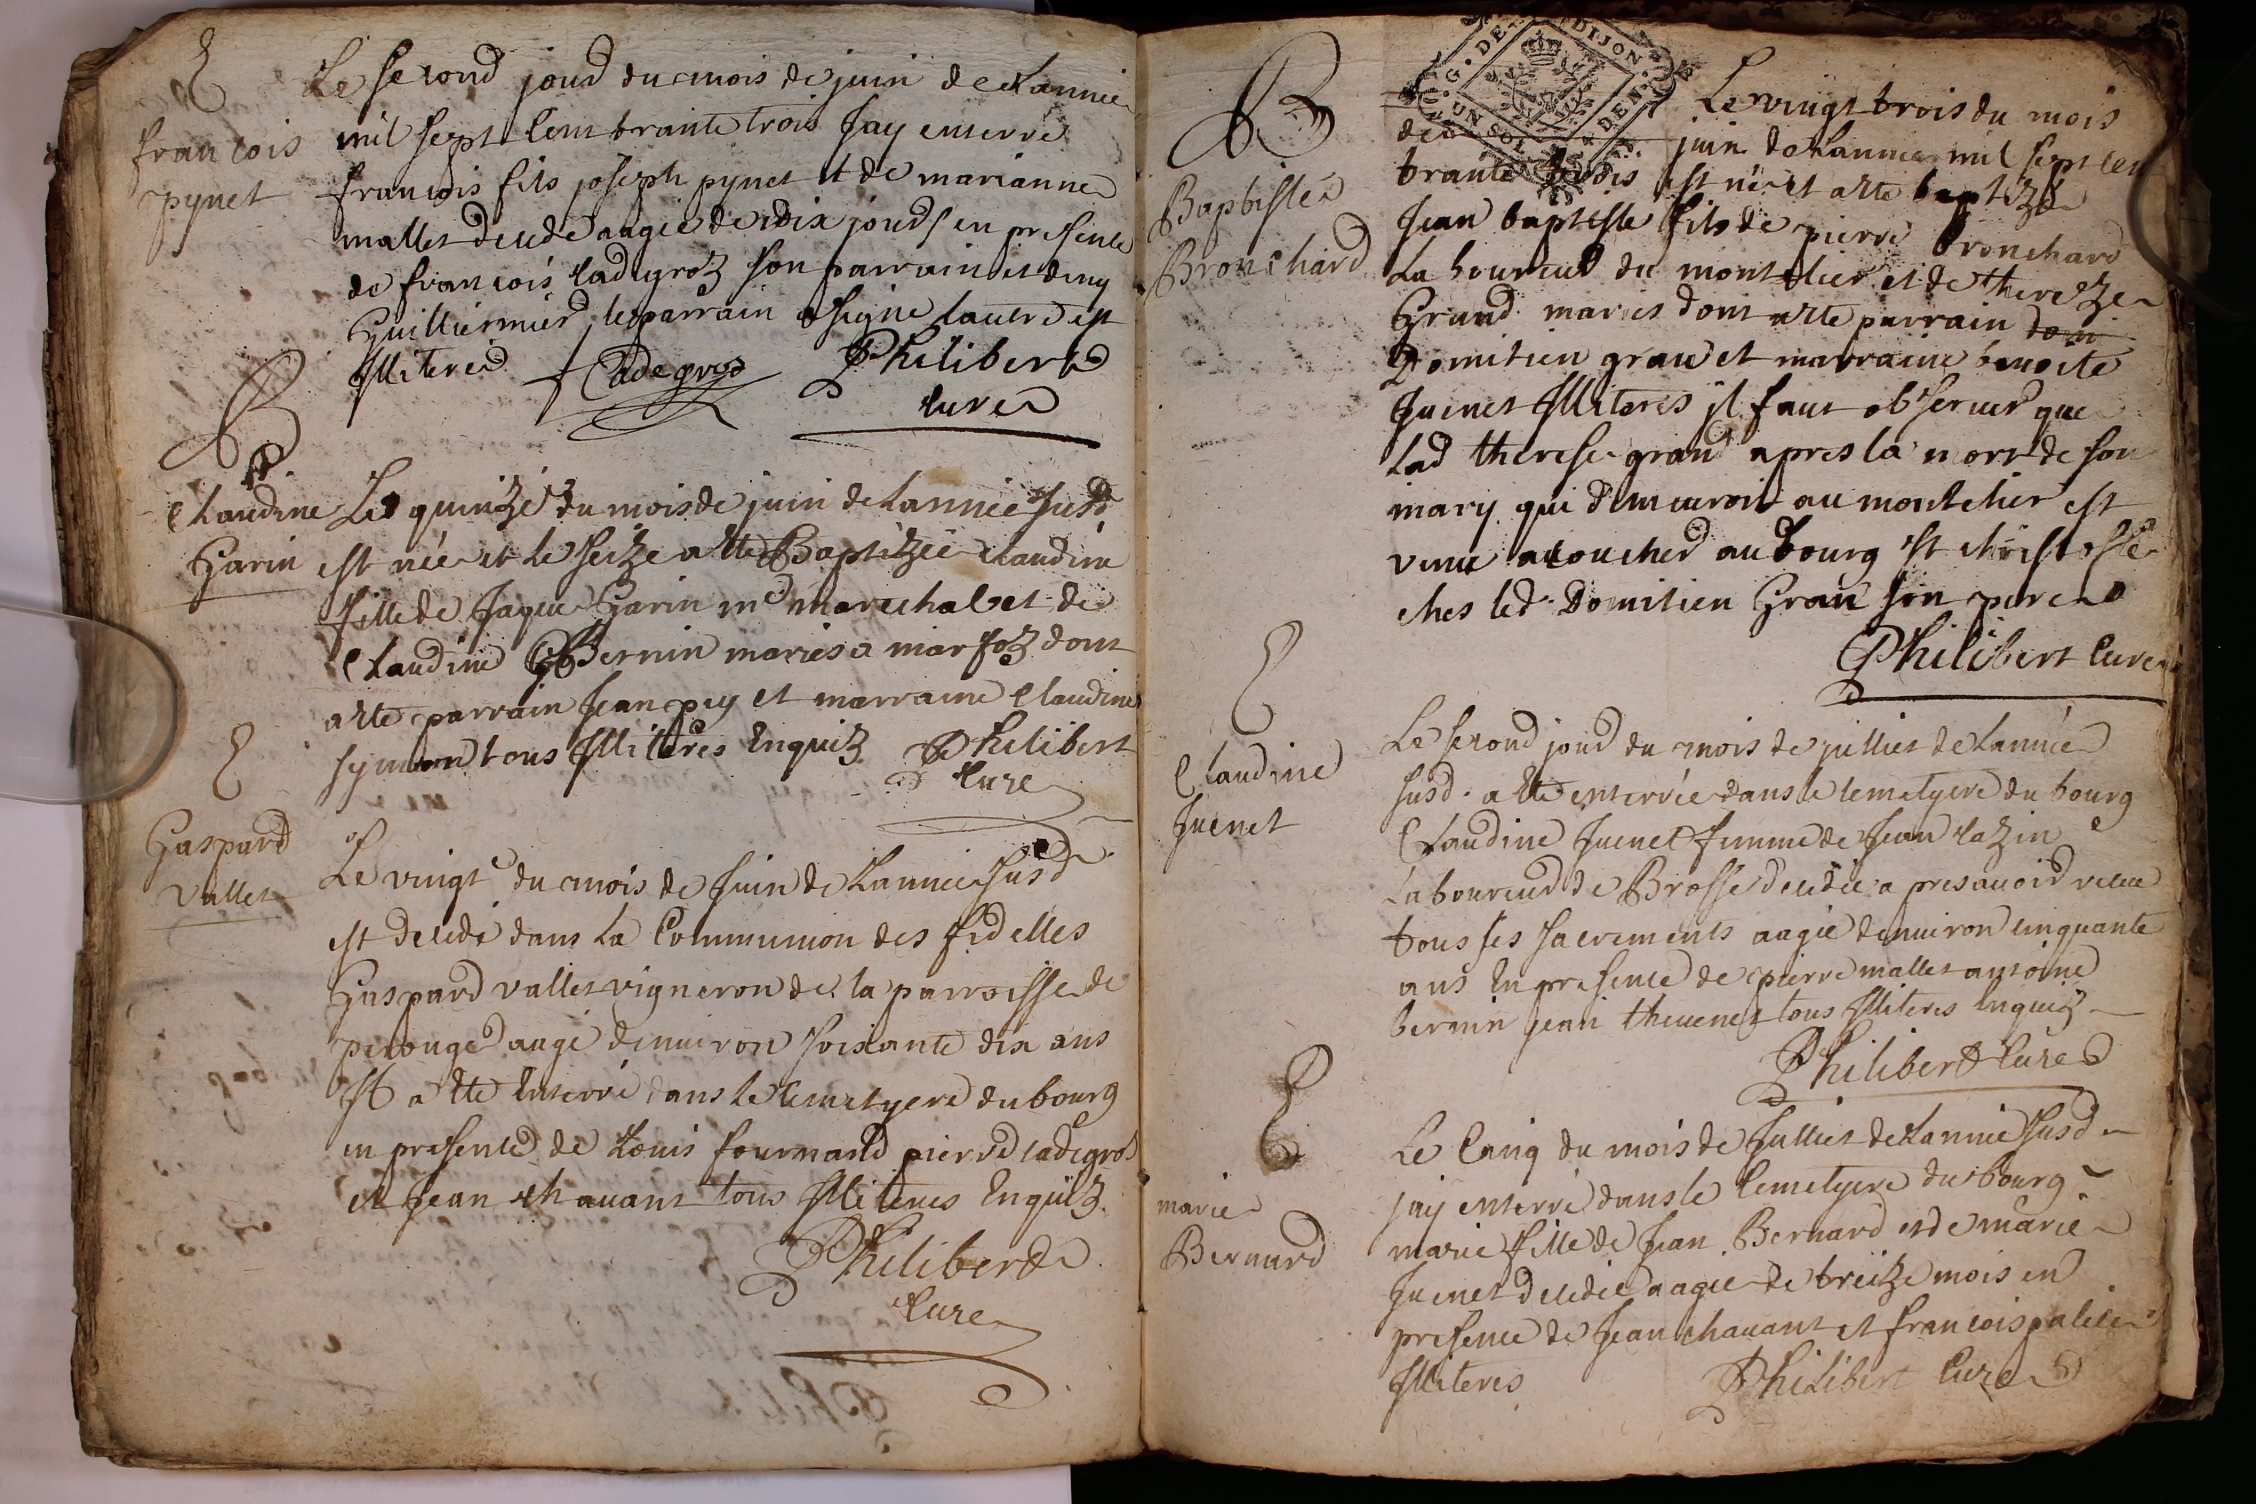 E
françois
pynet
Le second jour du mois de juin de Lannée
mil sept Cent trante trois Jay enterré
françois fils joseph pynet et de marianne
mallet decede aagée de dix jours en presence
de françois Cadegroz son parrain et deny
Guilliermier le parrain a signe lautre est
Illiteré Cadegros Philibert
Cure
B
Claudine
Garin
Le quinzé du mois de juin de Lannée susd
est née et le seize a Ette Baptizée Claudine
fille de Jaque Garin md marechal et de
Claudine Bernin mariés a marfoz dont
a Ette parrain Jean pey et marraine Claudine
symon tous Illiteres Enquiz Philibert
Cure
E
Gaspard
Vallet
Le vingt du mois de Juin de Lannée susd
est decedé dans La Communion des fidelles
Gaspard vallet vigneron de la parroisse de
perouge aagé denuiron soixante dix ans
Et a Ette Enterré dans le Cemetyere du bourg
en presence de Louis fournand pierre Cadegros
et Jean Chauant tous Illiteres Enquiz
Philibert
Cure
G. DE DIJON
UN SOL DEN
B
Baptiste
Bronchard
Le vingt trois du mois
de juin de Lannée mil sept cent
trante trois est né et a Ette baptizé
Jean baptiste fils de pierre bronchard
Laboureur du montelier et de thereze
Grand mariés dont a Ette parrain dom
Domitien gran et marraine benoite
Juenet Illiteres il faut obseruer que
Lad therese grand apres la mort de son
mary qui demeuroit au montelier est
venue accoucher au bourg st christofle
ches led Domitien Gran son pere
Philibert Cure
E
Claudine
Juenet
Le second jour du mois de jullliet de Lannée
susd a Ette enterrée dans le Cemetyere du bourg
Claudine Juenet femme de Jean Cazin
Laboureur de Brosse decedée apres auoir receue
tous ses sacrements aagée denuiron cinquante
ans En presence de pierre mallet antoine
bernin jean theuenet tous Illiteres Enquiz
Philibert Cure
E
marie
Bernard
Le Cinq du mois de Julliet de Lannée susd
jay enterré dans le Cemetyere du bourg
marie fille de Jean Bernard et de marie
Juenet decedée aagée de treize mois en
presence de Jean chauant et francois
Illiteres Philibert Cure